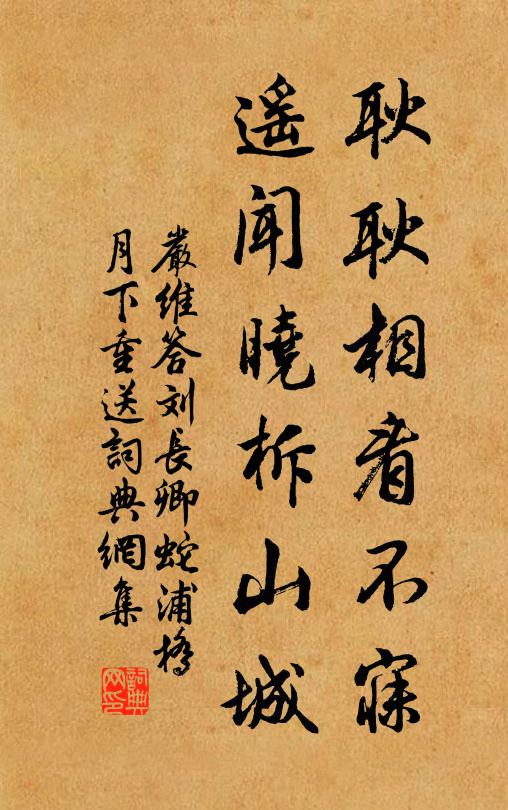 耿耿相看不寐
遥闻曉柝山城
嚴維答刘長卿蛇浦橋
月下重送詞典網集
詞典
网印